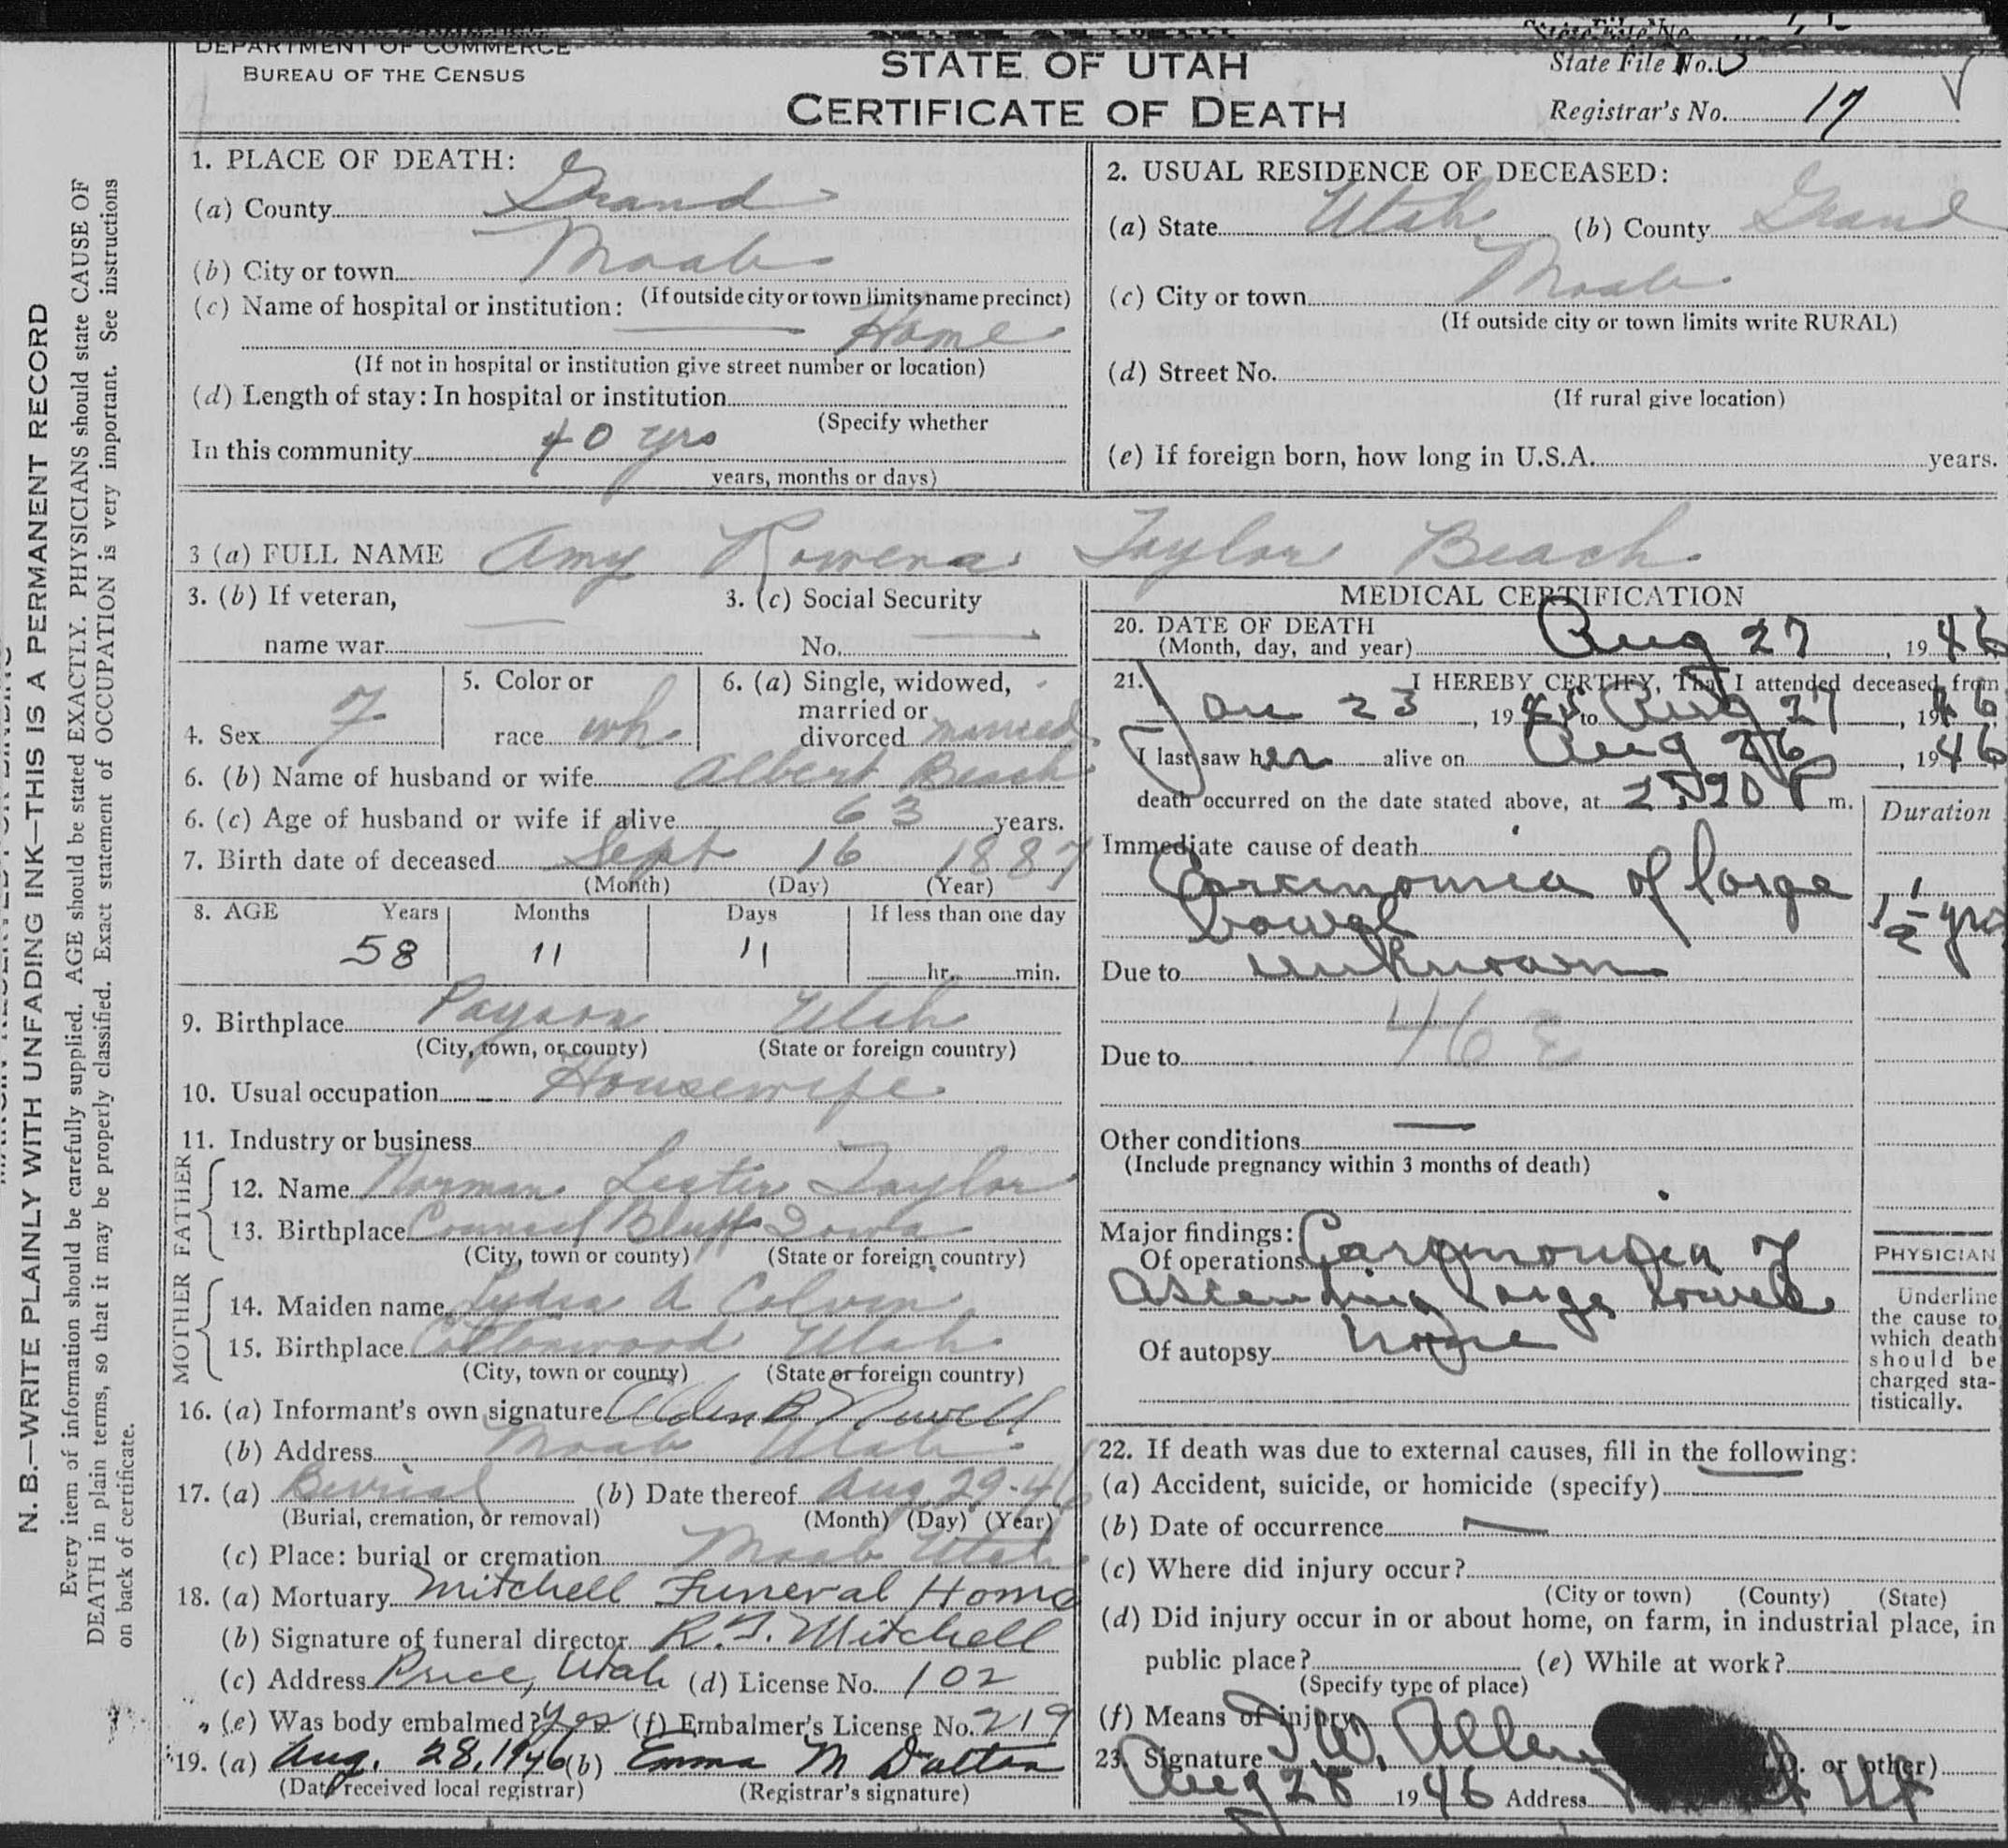 DEPARTMENT OF COMMERCE
BUREAU OF THE CENSUS
STATE OF UTAH
CERTIFICATE OF DEATH
State File No.
State File No.
Registrar's No. 17
N. B.—WRITE PLAINLY WITH UNFADING INK—THIS IS A PERMANENT RECORD
Every item of information should be carefully supplied. AGE should be stated EXACTLY. PHYSICIANS should state CAUSE OF
DEATH in plain terms, so that it may be properly classified. Exact statement of OCCUPATION is very important. See instructions
on back of certificate.
1. PLACE OF DEATH:
(a) County Grand
(b) City or town Moab
(If outside city or town limits name precinct)
(c) Name of hospital or institution:
Home
(If not in hospital or institution give street number or location)
(d) Length of stay: In hospital or institution
(Specify whether
In this community 40 yrs
years, months or days)
2. USUAL RESIDENCE OF DECEASED:
(a) State Utah (b) County Grand
(c) City or town Moab
(If outside city or town limits write RURAL)
(d) Street No.
(If rural give location)
(e) If foreign born, how long in U.S.A. years.
3 (a) FULL NAME Amy Rowena Taylor Beach
3. (b) If veteran,
name war
3. (c) Social Security
No.
4. Sex F
5. Color or
race wh
6. (a) Single, widowed,
married or
divorced married
6. (b) Name of husband or wife Albert Beach
6. (c) Age of husband or wife if alive 63 years.
7. Birth date of deceased Sept 16 1887
(Month) (Day) (Year)
8. AGE Years Months Days If less than one day
58 11 11 hr. min.
9. Birthplace Payson Utah
(City, town, or county) (State or foreign country)
10. Usual occupation Housewife
11. Industry or business
FATHER
12. Name Norman Lester Taylor
13. Birthplace Council Bluff Iowa
(City, town or county) (State or foreign country)
MOTHER
14. Maiden name Lydia A Colvin
15. Birthplace Cottonwood Utah
(City, town or county) (State or foreign country)
16. (a) Informant's own signature Alden B Nuvell
(b) Address Moab Utah
17. (a) Burial (b) Date thereof Aug 29-46
(Burial, cremation, or removal) (Month) (Day) (Year)
(c) Place: burial or cremation Moab Utah
18. (a) Mortuary Mitchell Funeral Home
(b) Signature of funeral director R.J. Mitchell
(c) Address Price, Utah (d) License No. 102
(e) Was body embalmed? Yes (f) Embalmer's License No. 219
19. (a) Aug. 28, 1946 (b) Emma M Dalton
(Date received local registrar) (Registrar's signature)
MEDICAL CERTIFICATION
20. DATE OF DEATH
(Month, day, and year) Aug 27, 1946
21. I HEREBY CERTIFY, That I attended deceased from
Jan 23, 1945 to Aug 27, 1946
I last saw her alive on Aug 26, 1946
death occurred on the date stated above, at 2:20 P m.
Duration
Immediate cause of death
Carcinomia of large
bowel
1 1/2 yrs
Due to unknown
46 E
Due to
Other conditions
(Include pregnancy within 3 months of death)
Major findings:
Of operations Carcinomia of
Ascending large bowel
Of autopsy None
PHYSICIAN
Underline
the cause to
which death
should be
charged sta-
tistically.
22. If death was due to external causes, fill in the following:
(a) Accident, suicide, or homicide (specify)
(b) Date of occurrence
(c) Where did injury occur?
(City or town) (County) (State)
(d) Did injury occur in or about home, on farm, in industrial place, in
public place? (e) While at work?
(Specify type of place)
(f) Means of injury
23. Signature I.W. Allen or other)
Aug 28 1946 Address Ut